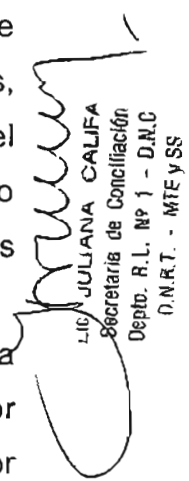 e
s,
el
o
s
a
or
or
LIC. JULIANA CALIFA
Secretaria de Conciliación
Depto. R.L. Nº 1 - D.N.C
D.N.R.T. - MTEySS